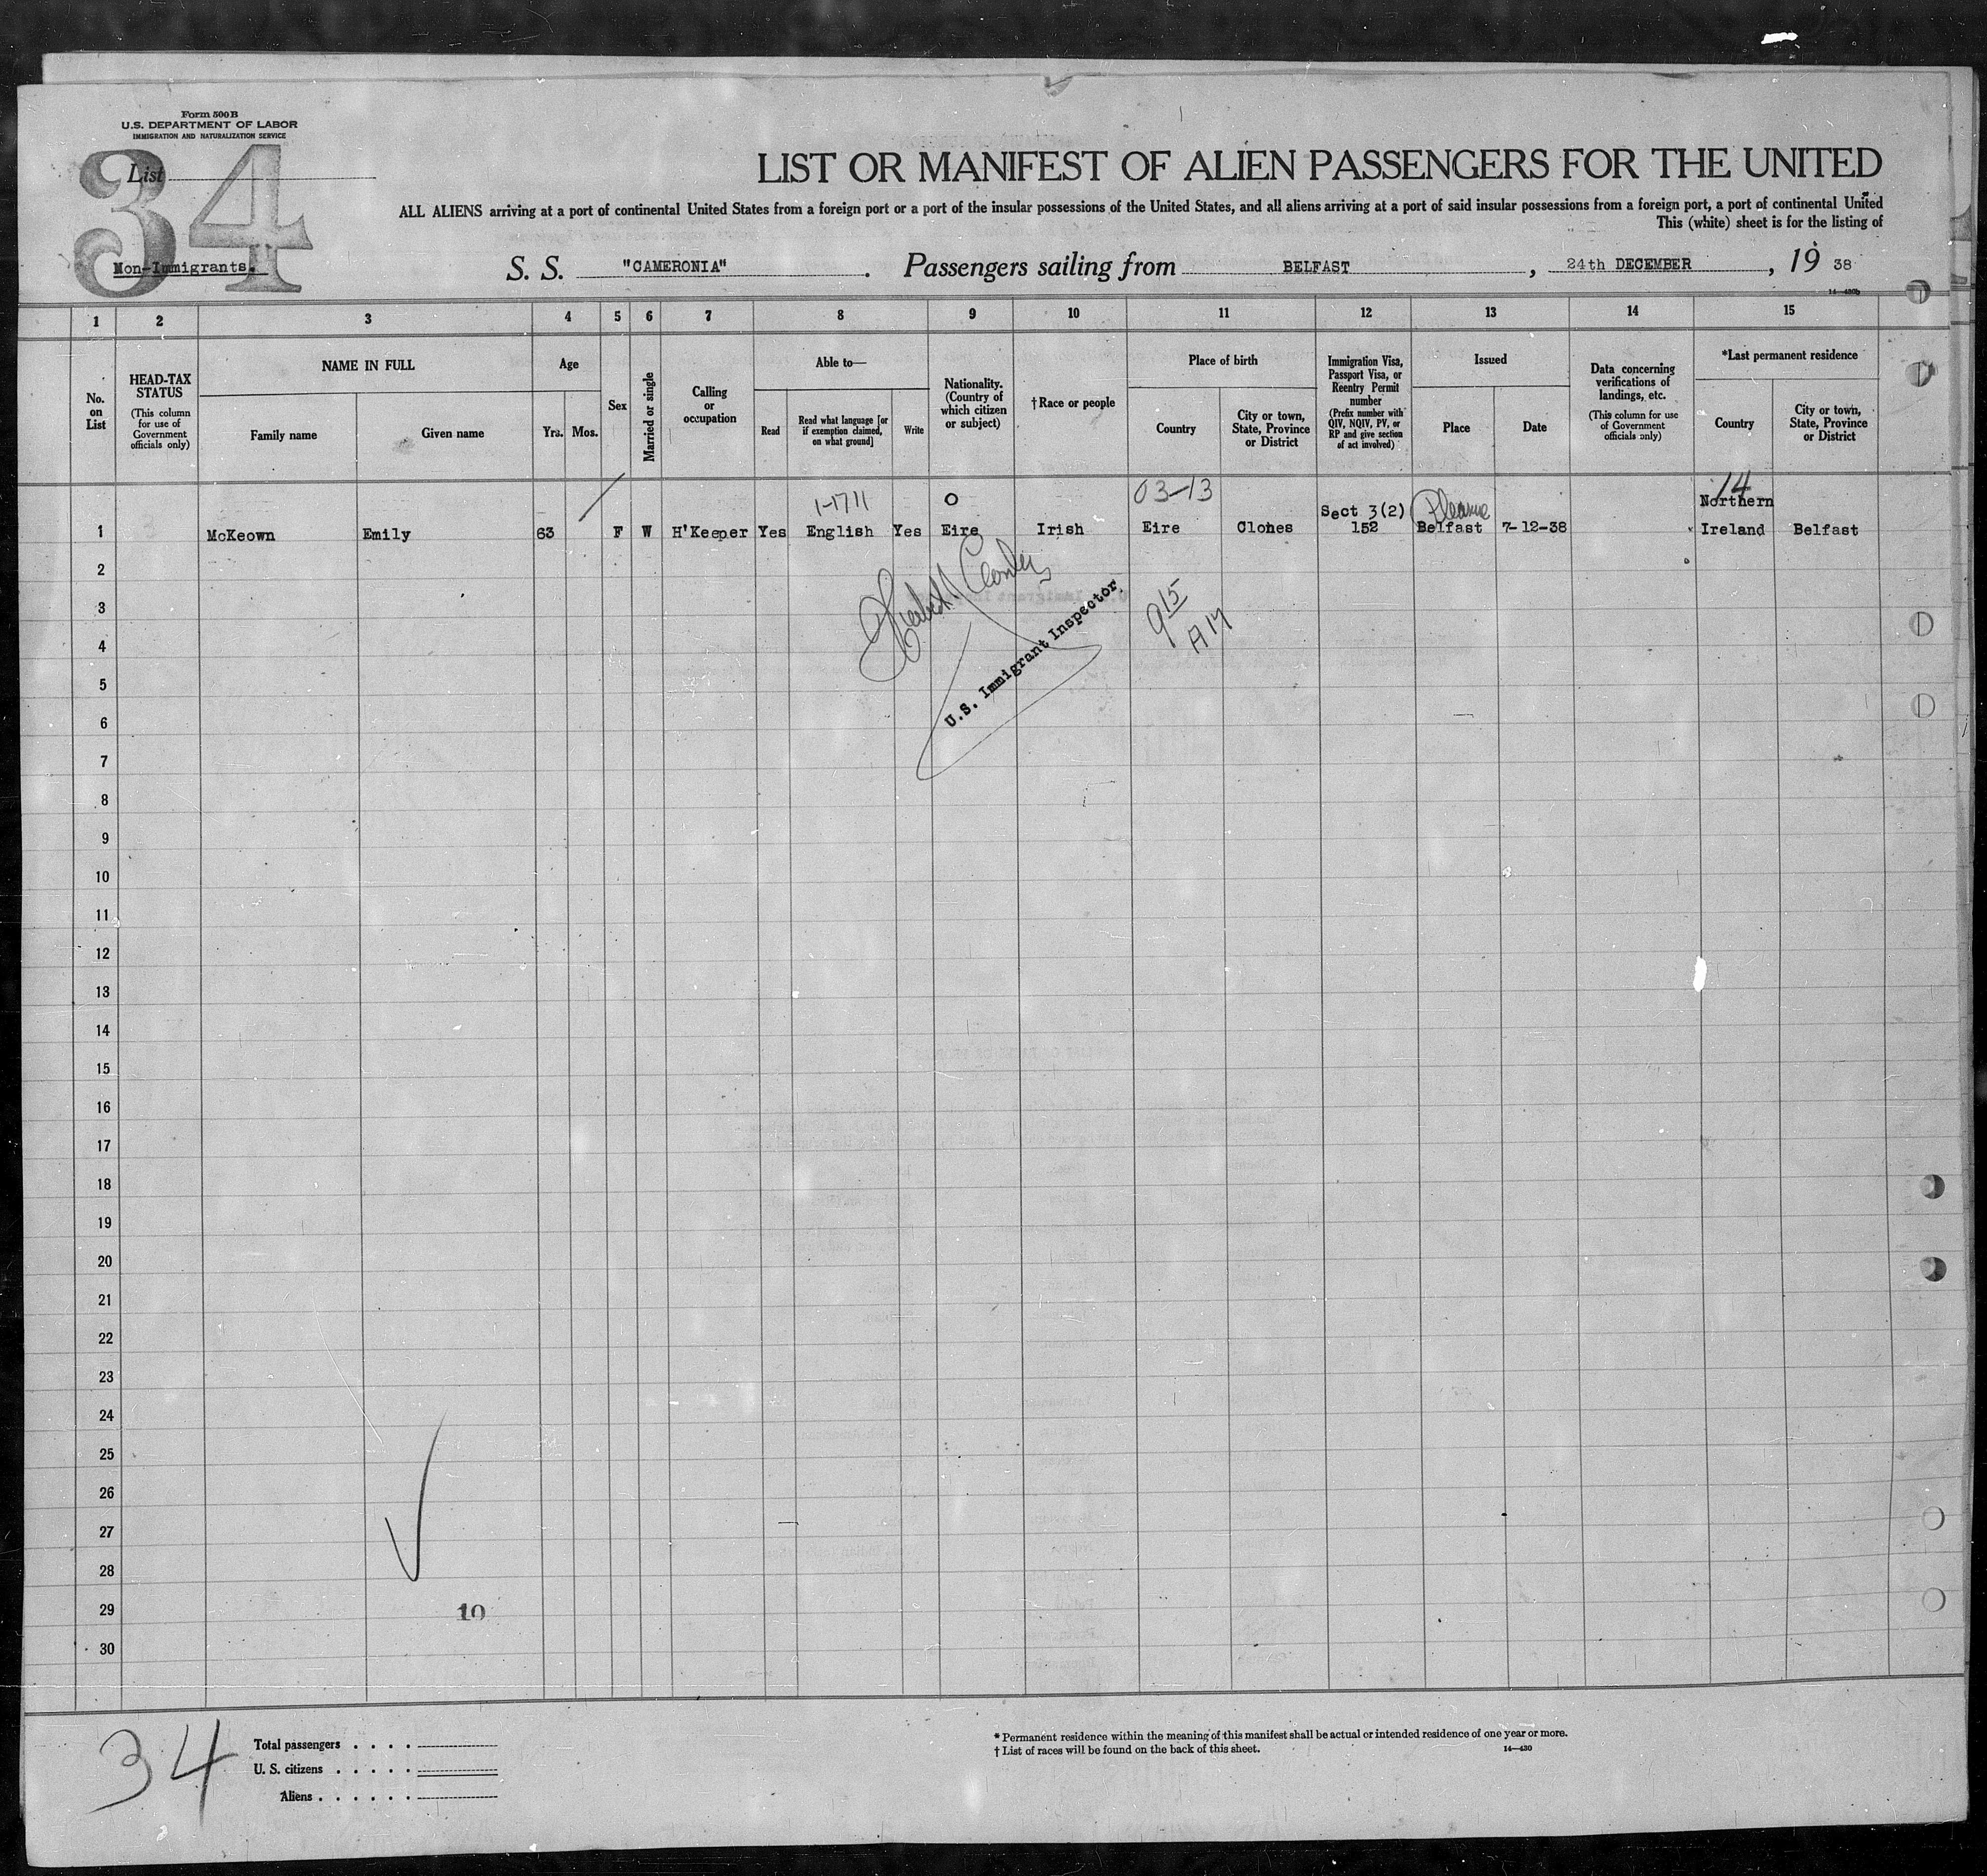 Form 500B
U.S. DEPARTMENT OF LABOR
IMMIGRATION AND NATURALIZATION SERVICE
34
List
Non-Immigrants.
LIST OR MANIFEST OF ALIEN PASSENGERS FOR THE UNITED
ALL ALIENS arriving at a port of continental United States from a foreign port or a port of the insular possessions of the United States, and all aliens arriving at a port of said insular possessions from a foreign port, a port of continental United
This (white) sheet is for the listing of
S. S. "CAMERONIA". Passengers sailing from BELFAST, 24th DECEMBER, 19 38
14—430b
1 2 3 4 5 6 7 8 9 10 11 12 13 14 15
No. on List
HEAD-TAX STATUS
(This column for use of Government officials only)
NAME IN FULL
Family name
Given name
Age
Yrs.
Mos.
Sex
Married or single
Calling or occupation
Able to—
Read
Read what language [or if exemption claimed, on what ground]
Write
Nationality. (Country of which citizen or subject)
†Race or people
Place of birth
Country
City or town, State, Province or District
Immigration Visa, Passport Visa, or Reentry Permit number
(Prefix number with QIV, NQIV, PV, or RP and give section of act involved)
Issued
Place
Date
Data concerning verifications of landings, etc.
(This column for use of Government officials only)
*Last permanent residence
Country
City or town, State, Province or District
1-1711
03-13
Sect 3(2)
14
Northern
1 McKeown Emily 63 F W H'Keeper Yes English Yes Eire Irish Eire Clones 152 Belfast 7-12-38 Ireland Belfast
2
3
4
5
6
7
8
9
10
11
12
13
14
15
16
17
18
19
20
21
22
23
24
25
26
27
28
29
30
U.S. Immigrant Inspector.
915
10
34
Total passengers
U. S. citizens
Aliens
* Permanent residence within the meaning of this manifest shall be actual or intended residence of one year or more.
† List of races will be found on the back of this sheet.
14—430